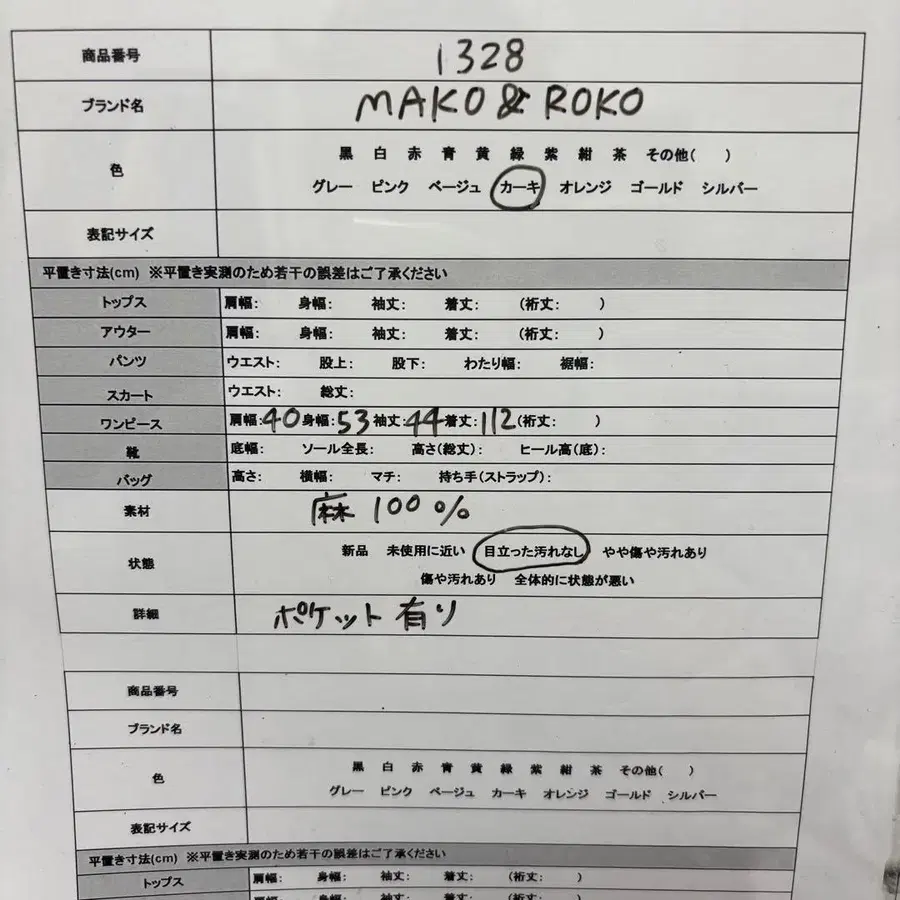 商品番号 1328
ブランド名 MAKO & ROKO
色 黒 白 赤 青 黄 緑 紫 紺 茶 その他( )
グレー ピンク ベージュ カーキ オレンジ ゴールド シルバー
表記サイズ
平置き寸法(cm) ※平置き実測のため若干の誤差はご了承ください
トップス 肩幅: 身幅: 袖丈: 着丈: (裄丈: )
アウター 肩幅: 身幅: 袖丈: 着丈: (裄丈: )
パンツ ウエスト: 股上: 股下: わたり幅: 裾幅:
スカート ウエスト: 総丈:
ワンピース 肩幅:40 身幅:53 袖丈:44 着丈:112 (裄丈: )
靴 底幅: ソール全長: 高さ(総丈): ヒール高(底):
バッグ 高さ: 横幅: マチ: 持ち手(ストラップ):
素材 麻 100%
状態 新品 未使用に近い 目立った汚れなし やや傷や汚れあり
傷や汚れあり 全体的に状態が悪い
詳細 ポケット有り
商品番号
ブランド名
色 黒 白 赤 青 黄 緑 紫 紺 茶 その他( )
グレー ピンク ベージュ カーキ オレンジ ゴールド シルバー
表記サイズ
平置き寸法(cm) ※平置き実測のため若干の誤差はご了承ください
トップス 肩幅: 身幅: 袖丈: 着丈: (裄丈: )